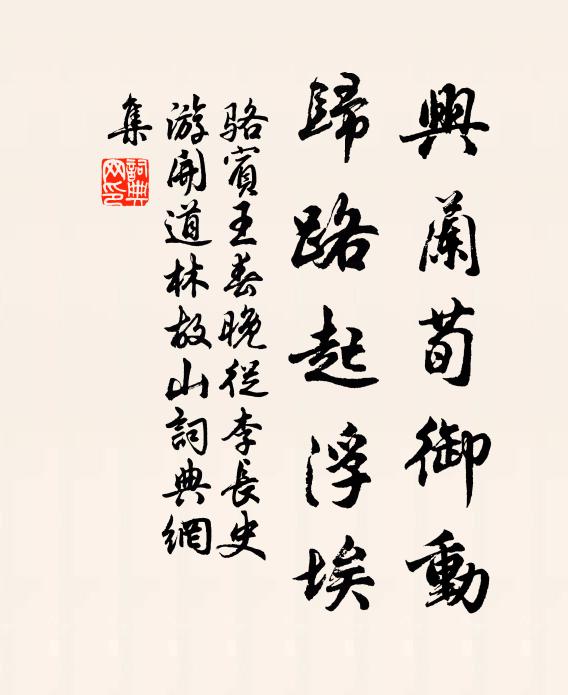 興闌荀御動
歸路起浮埃
駱賓王春晚從李長史
游開道林故山詞典網
集
詞典網印